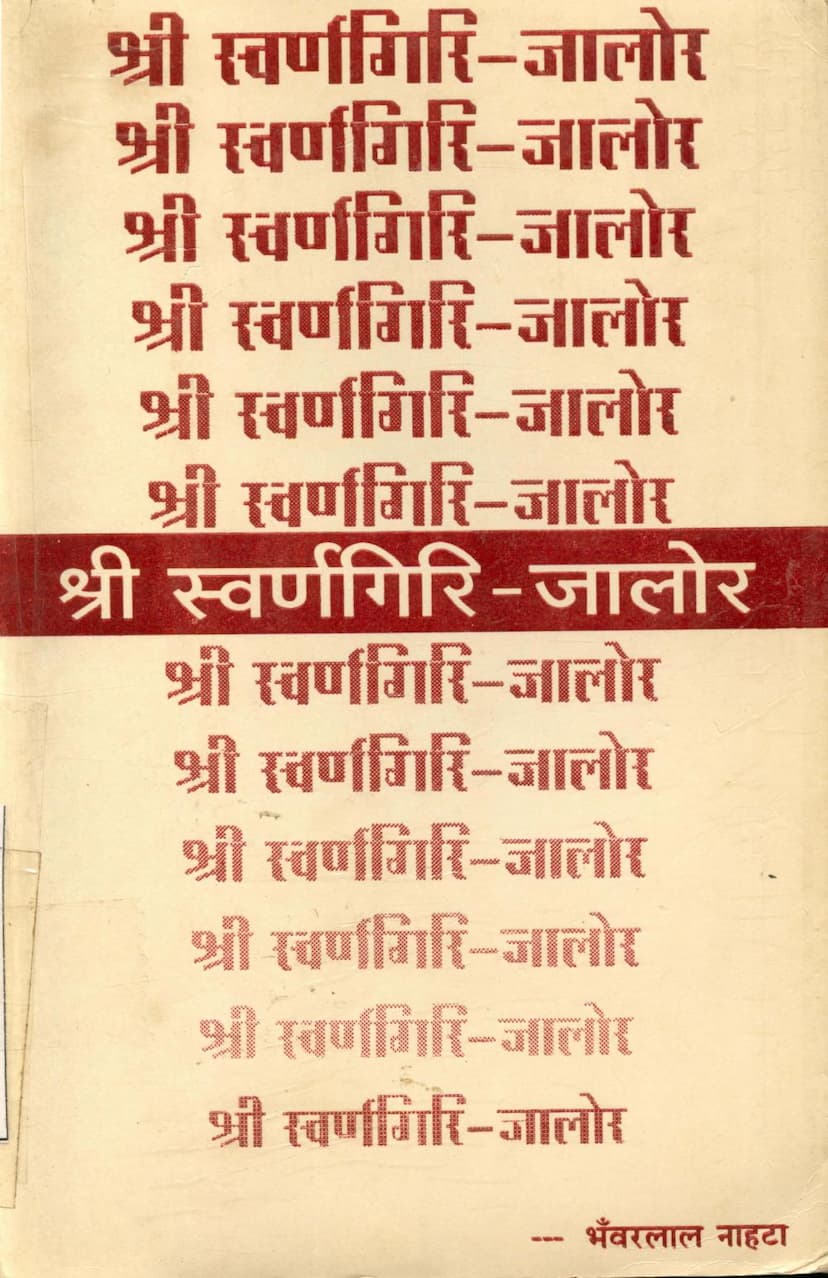 श्री स्वर्णगिरि-जालोर
श्री स्वर्णगिरि-जालोर
श्री स्वर्णगिरि-जालोर
श्री स्वर्णगिरि-जालोर
श्री स्वर्णगिरि-जालोर
श्री स्वर्णगिरि-जालोर
श्री स्वर्णगिरि - जालोर
श्री स्वर्णगिरि-जालोर
श्री स्वर्णगिरि-जालोर
श्री स्वर्णगिरि-जालोर
श्री स्वर्णगिरि-जालोर
श्री स्वर्णगिरि-जालोर
श्री स्वर्णगिरि-जालोर
--- भँवरलाल नाहटा